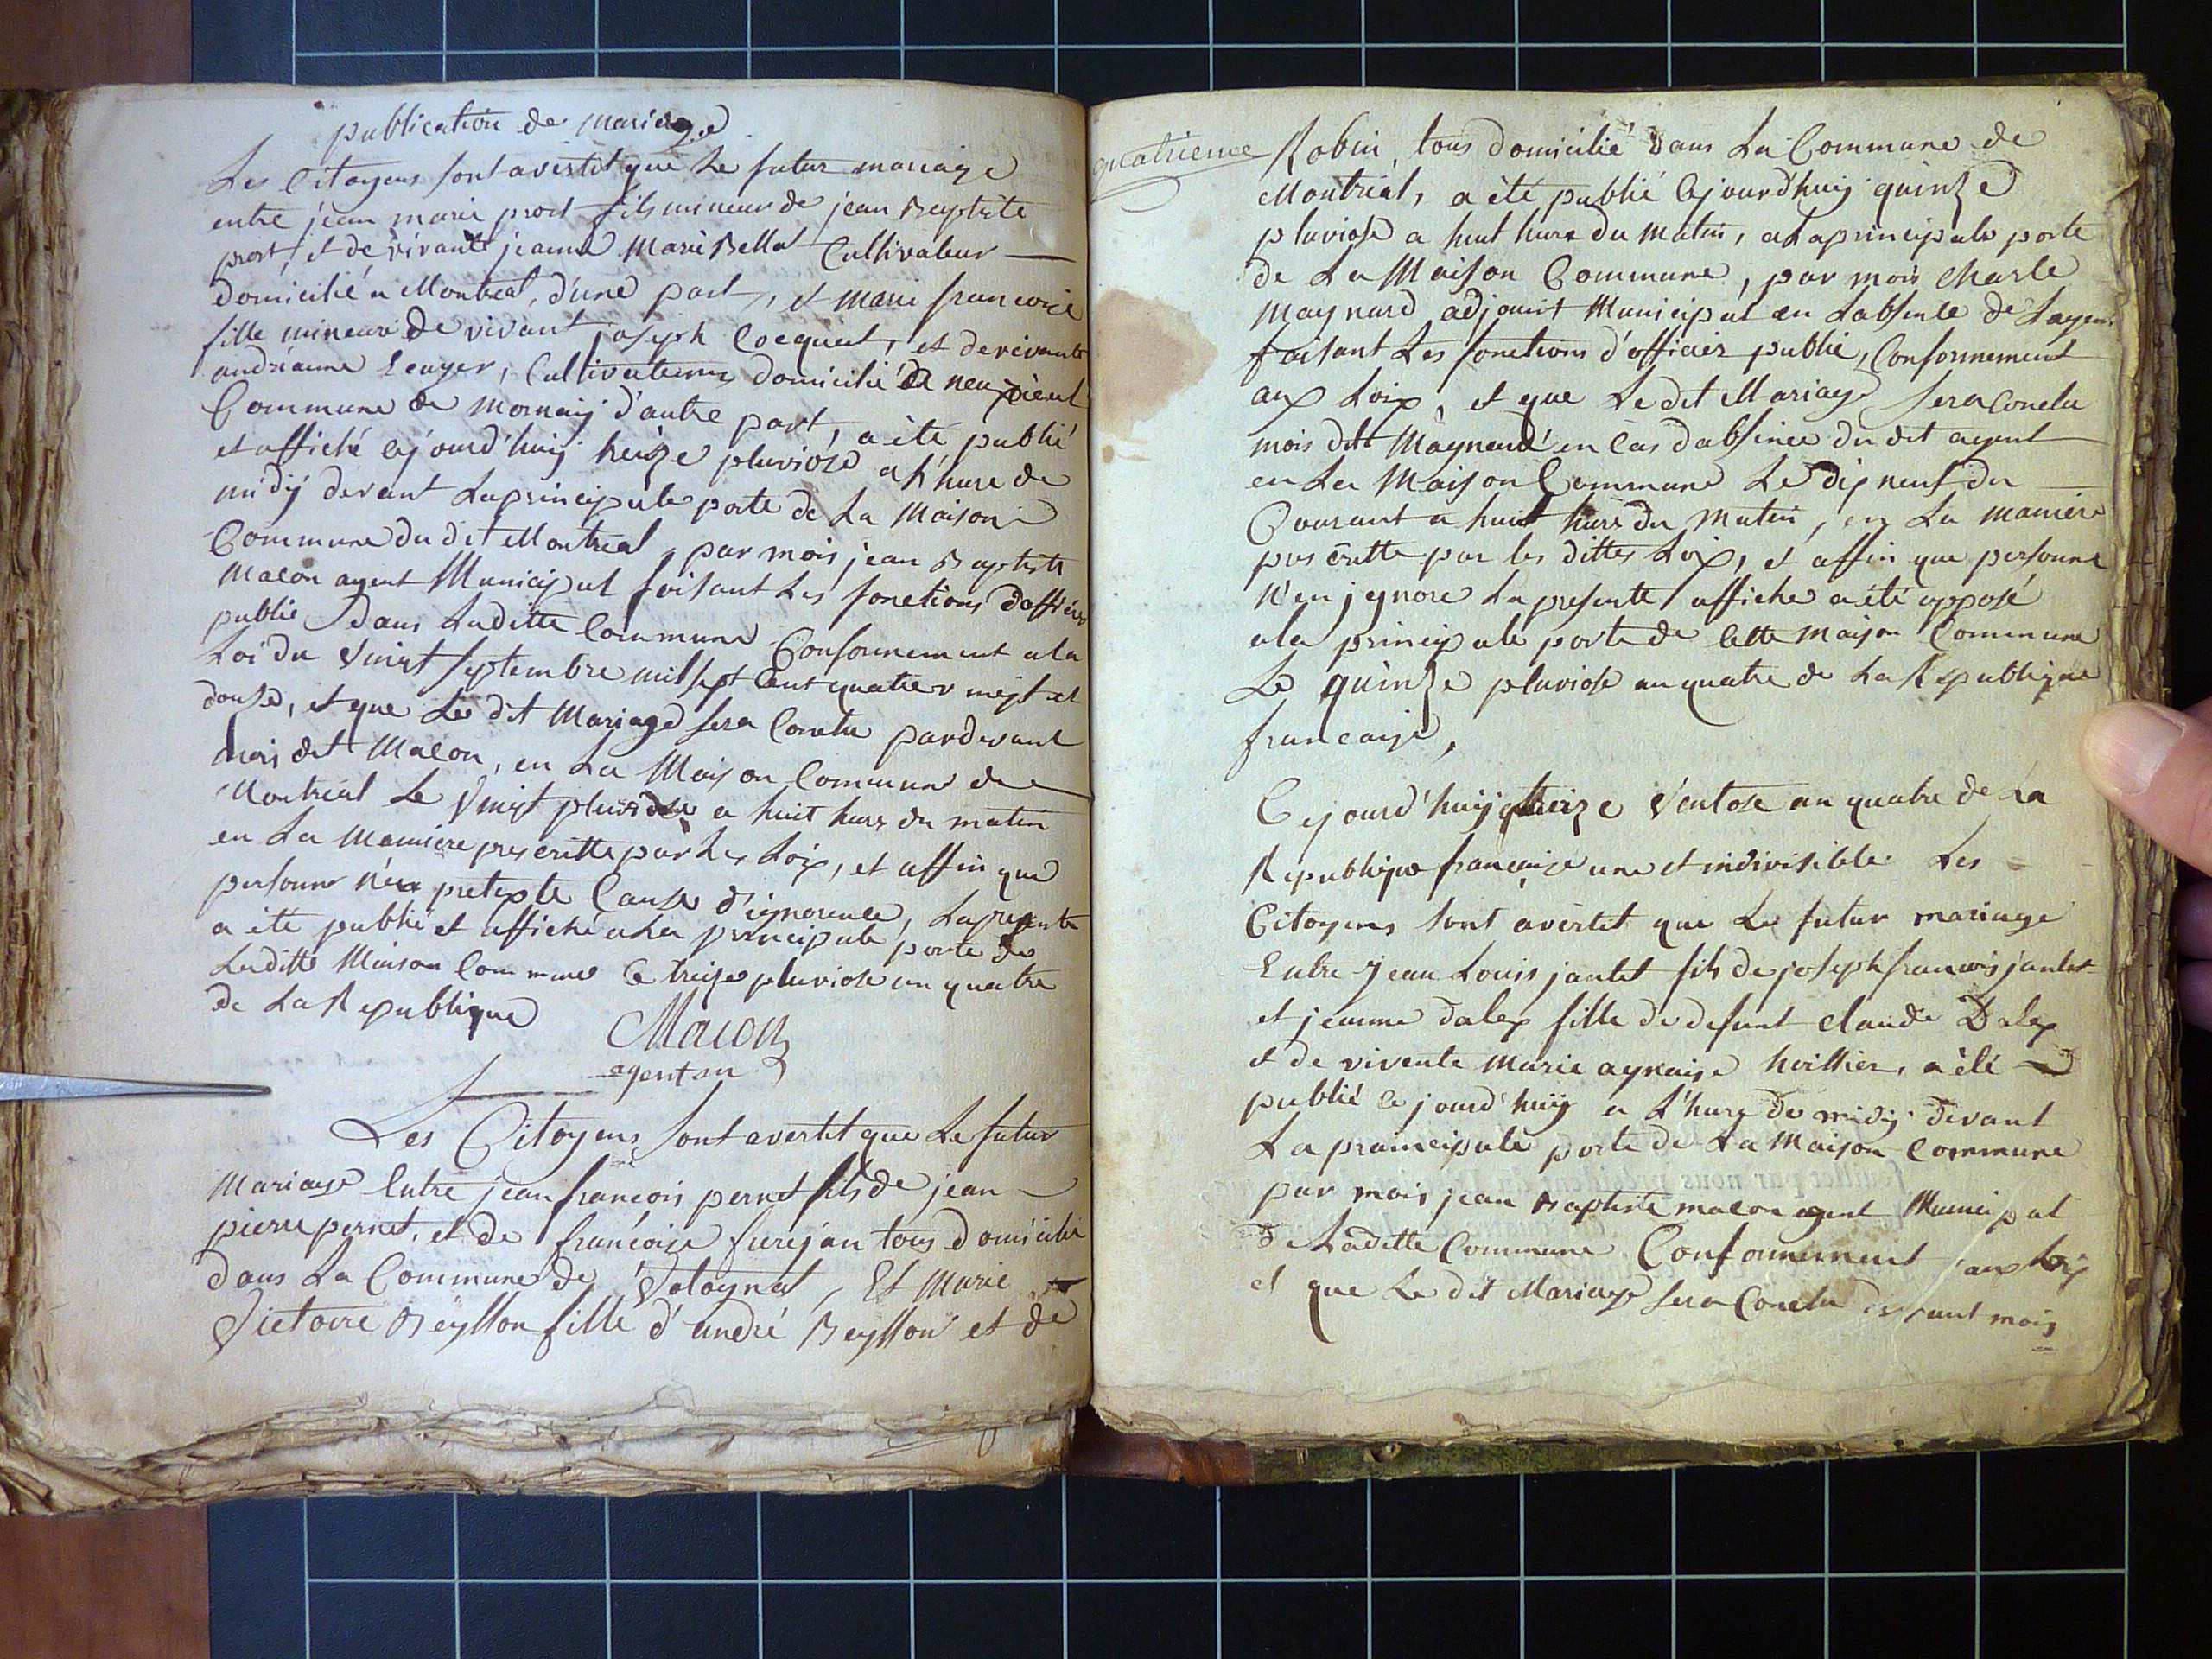 publication de mariage
Les Citoyens sont avertit que Le futur mariage
entre jean marie prost fils mineur de jean Baptiste
prost, et de vivante jeanne Marie Bellat Cultivateur
domicilié a Montreal, d'une part, et marie francoise
fille mineure de vivant joseph Cocquet, et de vivante
andrianne Leuger, Cultivateurs domicilié de
Commune de Mornay d'autre part, a été publié
et affiché cejourd'huy treize pluviose a L'hure de
midÿ devant La principale porte de La Maison
Commune du dit Montreal, par mois jean Baptiste
Macon agent Municipal faisant Les fonctions d'officier
public dans Laditte Commune Conformement a la
Loi du vingt septembre mil sept Cent quatre vingt et
douse, et que Le dit Mariage sera Conclu pardevant
mois dit Macon, en La Maison Commune de
Montreal Le vingt pluviose a huit hure du matin
en La maniere prescritte par Les Loix, et affin que
personne n'en pretexte Cause d'ignorence, La presente
a été publié et affiché a La principale porte de
Laditte Maison Commune Ce treize pluviose an quatre
de La Republique
Macon
agent m
Les Citoyens sont avertit que Le futur
Mariage Entre jean françois pernet fils de jean
pierre pernet, et de françoise furejan tous domicilié
dans La Commune de Volognat, Et Marie
Victoire Beysson fille d'andré Beysson et de
quatrieme
Robin, tous domicilié dans La Commune de
Montreal, a été publié Cejourd'huy quinze
pluviose a huit hure du matin, a La principale porte
de La Maison Commune, par mois Charle
Maynard adjoint Municipal en L'absence de L'agent
faisant Les fonctions d'officier public, Conformement
aux Loix, et que Le dit Mariage sera Conclu
mois dit Maynard en Cas d'absence du dit agent
en La Maison Commune Le dix neuf du
Courant a huit hure du Matin, en La maniere
prescritte par les dittes Loix, et affin que personne
n'en jgnore La presente affiche a été apposé
a la principale porte de Cette Maison Commune
Le quinze pluviose an quatre de La Republique
francaise,
Cejourd'huy treize Ventose an quatre de La
Republique francaise une et indivisible Les
Citoyens sont avertit que Le futur mariage
Entre Jean Louis jantet fils de joseph francois jantet
et jeanne dalex fille de defunt Claude Dalex
et de vivente Marie aynaise huillier, a été
publié Cejourd'huÿ a L'hure de midÿ devant
La prainsipale porte de La Maison Commune
par mois jean Baptiste macon agent Municipal
de Laditte Commune Conformement aux Loix
et que Le dit Mariage sera Conclu devant mois